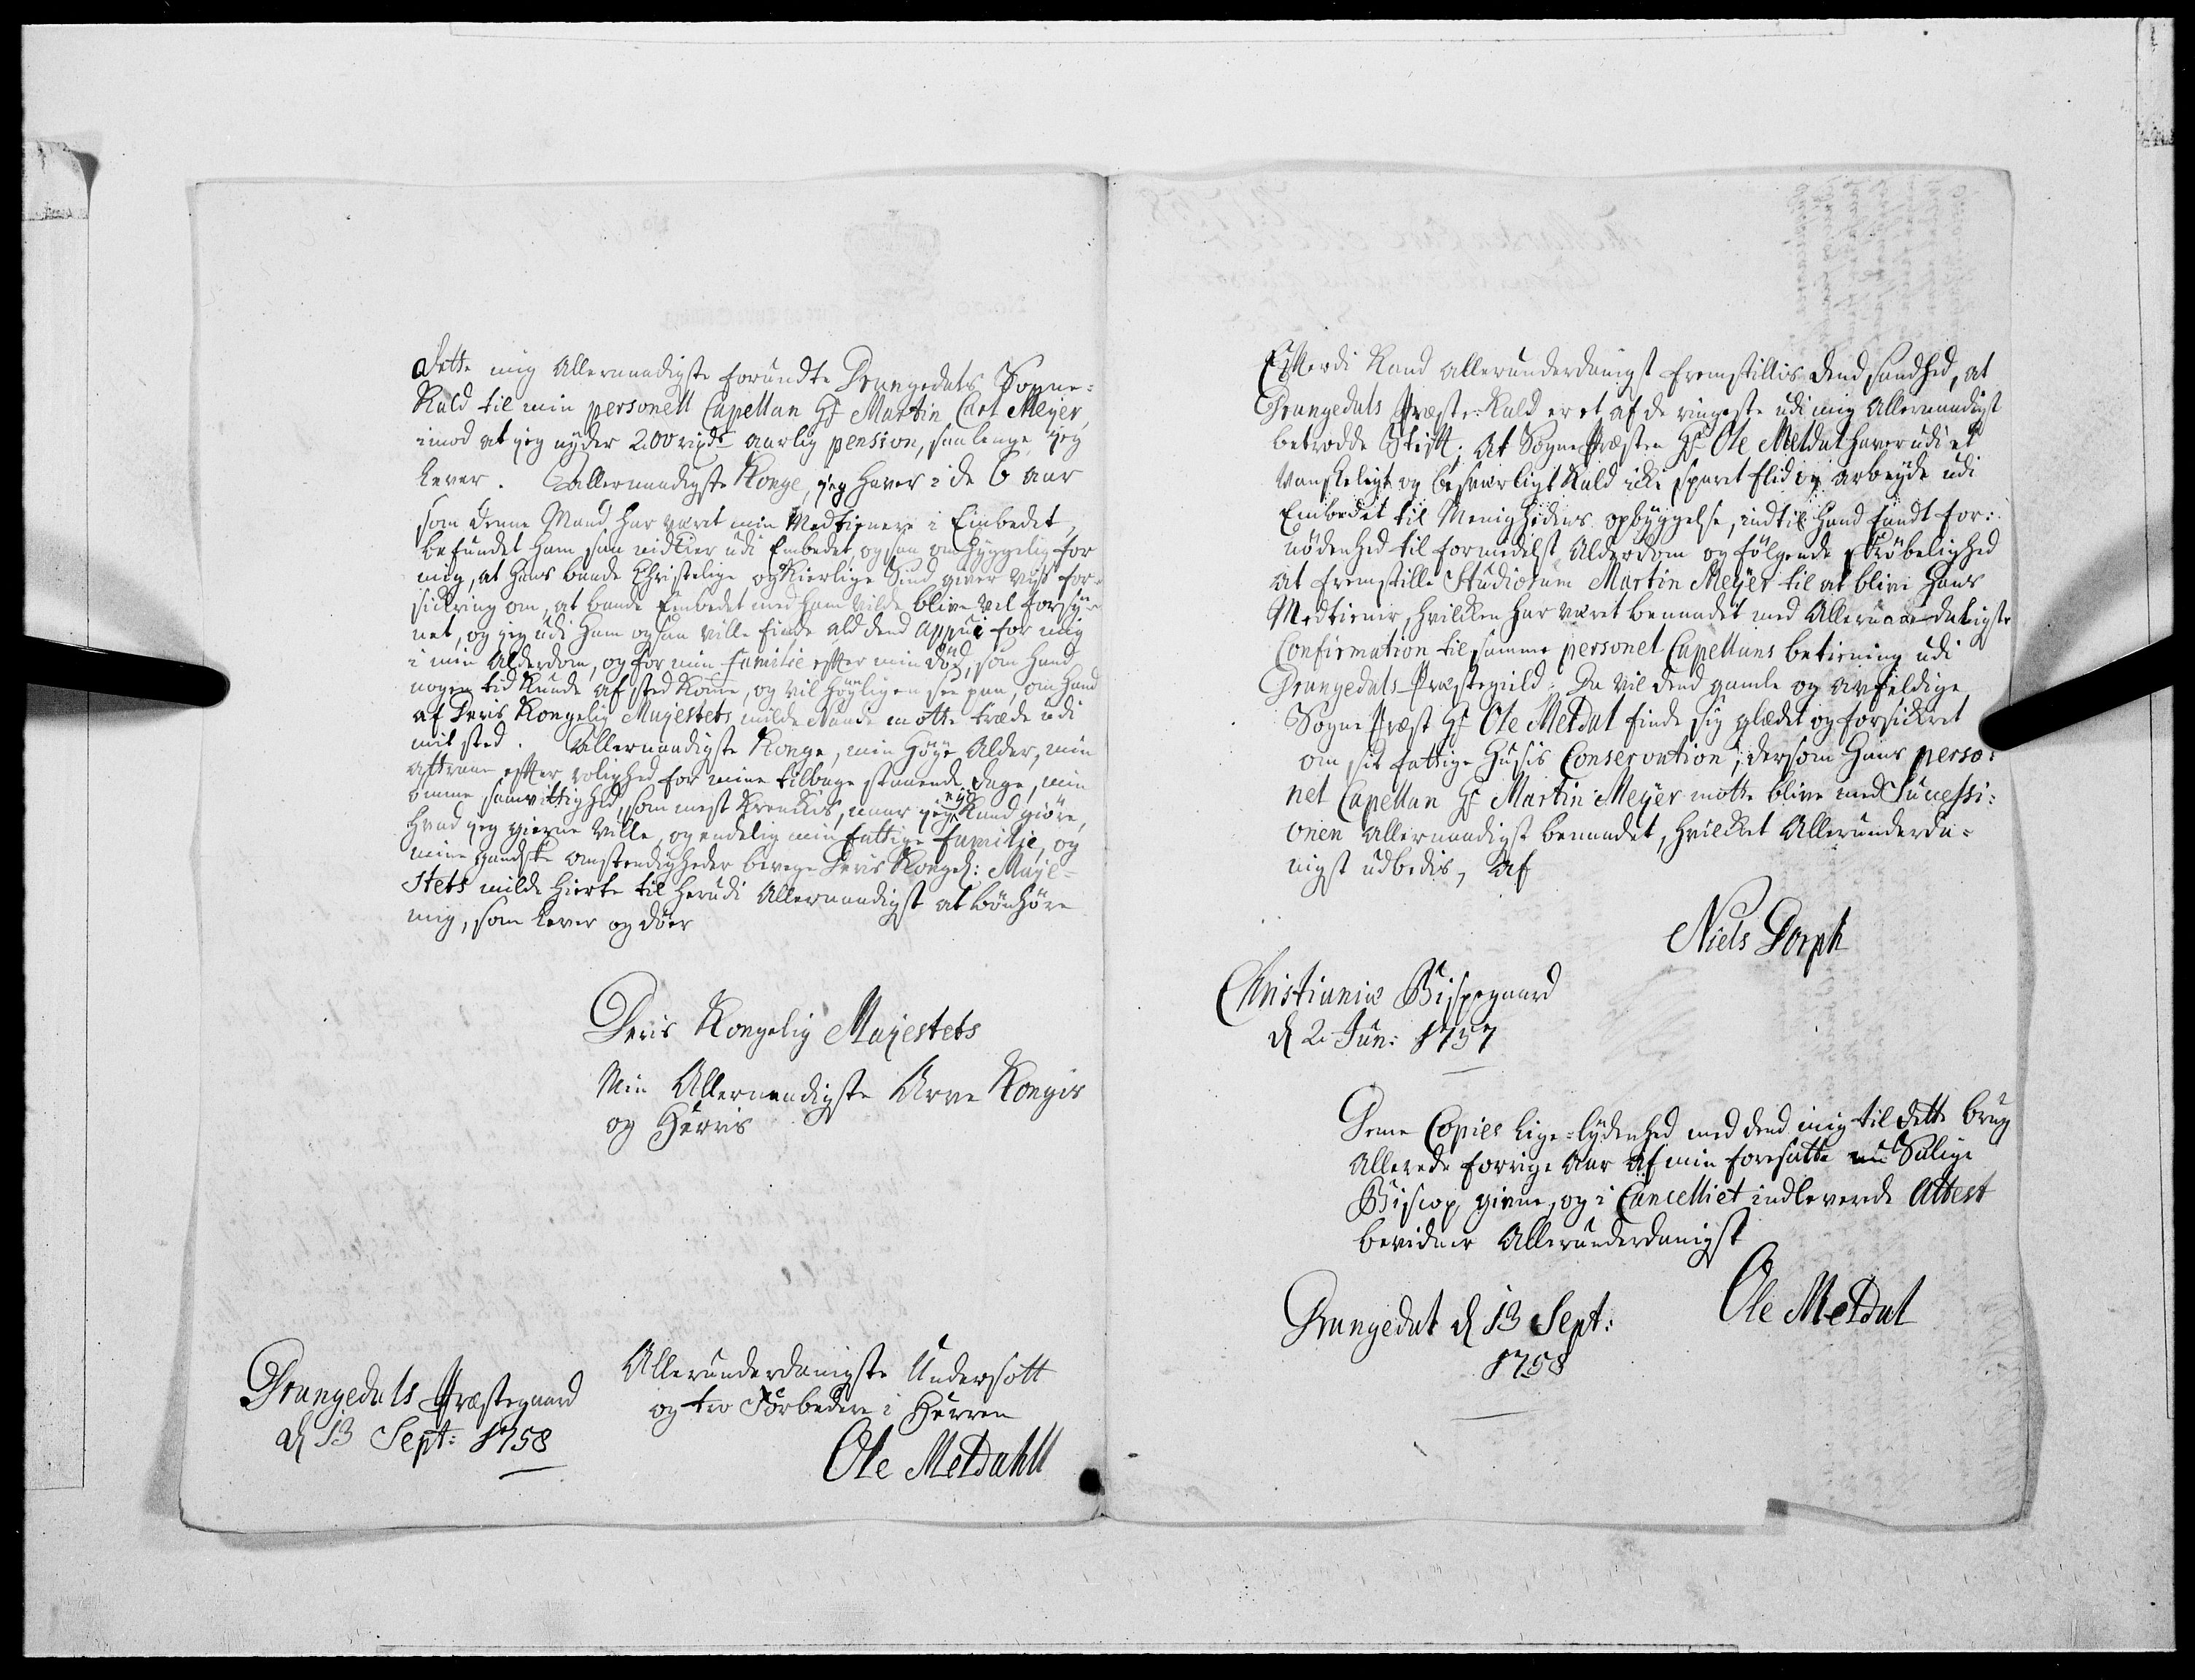 dette mig Allernaadigste forundte Drangedals Sogne-
Kald til min personell Capellan Hr Martin Carl Meyer,
imod at jeg nyder 200 rixdr aarlig pension, saa lenge jeg
lever. Allernaadigste Konge, jeg haver i de 6 aar
som denne Mand har været min Medtienere i Embedet,
befundet ham saa nidkier udi Embedet, og saa omhyggelig for
mig, at hans baade Christelige og Kierlige Sind giver vyss for-
sickring om, at baade Embedet med ham vilde blive vel forsÿ-
net, og jeg udi ham ogsaa ville finde ald dend appui for mig
i min Alderdom, og for min familie efter min død, som hand
nogen tid kunde af sted komme, og vil høyligen see paa, om hand
af Deris Kongelig Majestets milde Naade motte træde udi
mit sted. Allernaadigste Konge, min høye Alder, min
attraae efter rolighed for mine tilbage staaende dage, min
omme samvittighed, som mest krenkes, naar jeg eij kand giøre,
hvad jeg gierne ville, og endelig min fattige familie, og
mine gandske omstendigheder bevege Deris Kongel: Maye-
stets milde hierte til herudi Allernaadigst at bønhøre
mig, som lever og døer
Deris Kongelig Majestets
Min Allernaadigste Arve Konges
og Herris
Allerunderdanigste Undersott
og tro Forbedere i Herren
Ole Meldahll
Drangedals Præstegaard
d 13 Sept: 1758
Efterdi Kand allerunderdanigst fremstillis dend sandhed, at
Drangedals Præste-Kald er et af de ringeste udi mig Allernaadigst
betrodde Stift; At SognePræsten Hr Ole Meldal haver udi et
Vanskeligt og besværligt Kald icke sparet flid og arbeyde udi
Embedet til Menighedens opbyggelse, indtil hand fandt for:
nødenhed til formedelst Alderdom og følgende Skrøbelighed
at fremstille Studiosum Martin Meyer til at blive hans
Medtiener, hvilcken har været benaadet med Allernaadaligste
Confirmation til samme personel Capellans betiening udi
Drangedals Præstegield: Da vil dend gamle og avfeldige
Sogne Præst Hr Ole Meldal finde sig glædet og forsickret
om sit fattige Husis Conservation, dersom hans perso:
nel Capellan Hr Martin Meyer motte blive med Successi:
onen allernaadigst benaadet, hvilcket Allerunderda-
nigst udbedis, af
Niels Dorph
Christianiæ Bispegaard
d 2 Jun: 1757
Denne Copies lige-lydenhed med dend mig til dette brug
Allerede forrige Aar af min foresatte nu Salige
Biscop givne, og i Cancelliet indleverede Attest
bevidner Allerunderdanigst
Ole Meldal
Drangedal d 13 Sept:
1758